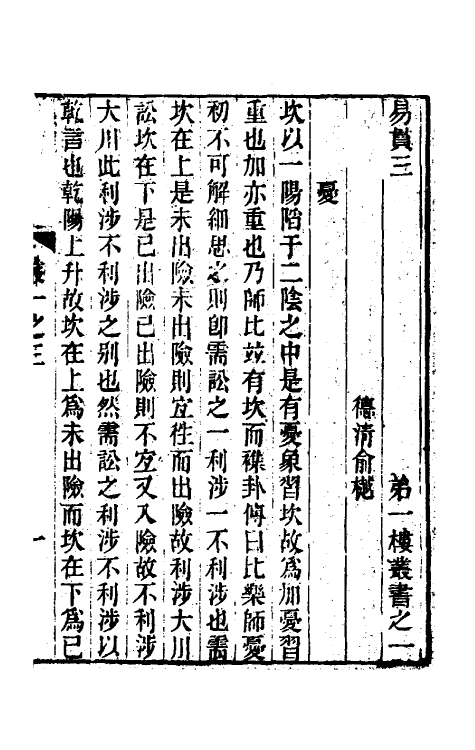 易貫三 弟一樓叢書之一
德清俞樾
憂
坎以一陽陷于二陰之中是有憂象習坎故爲加憂習
重也加亦重也乃師比竝有坎而襍卦傳曰比樂師憂
初不可解細思之則卽需訟之一利涉一不利涉也需
坎在上是未出險未出險則宜往而出險故利涉大川
訟坎在下是已出險已出險則不宜又入險故不利涉
大川此利涉不利涉之别也然需訟之利涉不利涉以
乾言也乾陽上升故坎在上爲未出險而坎在下爲已
一之三
一